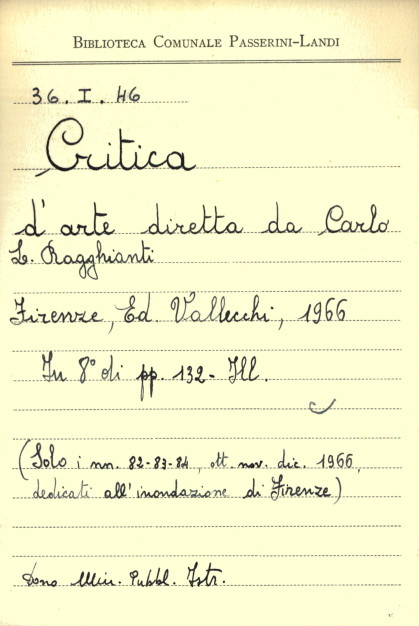 BIBLIOTECA COMUNALE PASSERINI-LANDI
36. I. 46
Critica
d'arte diretta da Carlo
L. Ragghianti
Firenze, Ed. Vallecchi, 1966
In 8° di pp. 132 - Ill.
(Solo i nn. 82-83-84, ott. nov. dic. 1966,
dedicati all'inondazione di Firenze)
Dono Min. Pubbl. Istr.